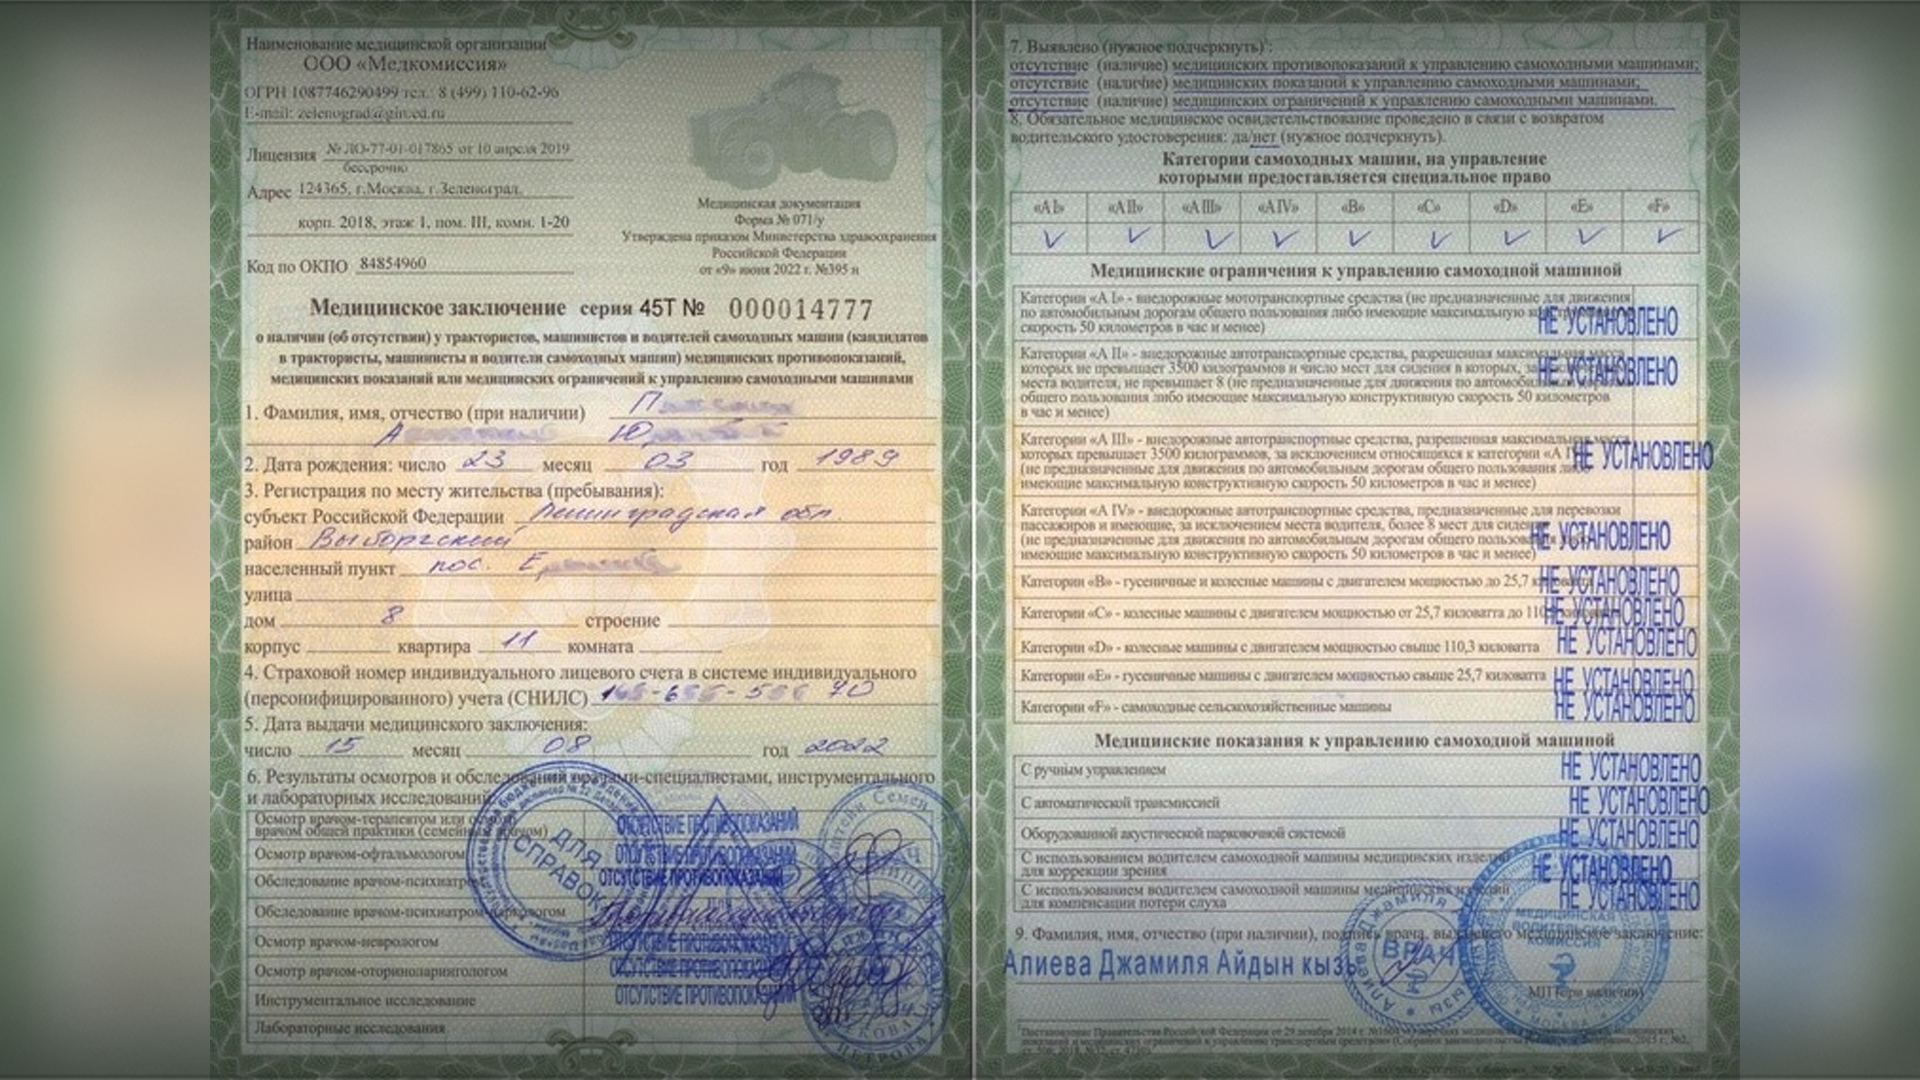 Наименование медицинской организации
ООО «Медкомиссия»
ОГРН 1087746290499 тел.: 8 (499) 110-62-96
E-mail: zelenograd@
Лицензия № ЛО-77-01-017865 от 10 апреля 2019
бессрочно
Адрес 124365, г.Москва, г.Зеленоград,
корп. 2018, этаж 1, пом. III, комн. 1-20
Код по ОКПО 84854960
Медицинская документация
Форма № 071/у
Утверждена приказом Министерства здравоохранения
Российской Федерации
от «9» июня 2022 г. №395 н
Медицинское заключение серия 45Т № 000014777
о наличии (об отсутствии) у трактористов, машинистов и водителей самоходных машин (кандидатов
в трактористы, машинисты и водители самоходных машин) медицинских противопоказаний,
медицинских показаний или медицинских ограничений к управлению самоходными машинами
1. Фамилия, имя, отчество (при наличии)
2. Дата рождения: число 23 месяц 03 год 1989
3. Регистрация по месту жительства (пребывания):
субъект Российской Федерации Ленинградская обл.
район Выборгский
населенный пункт пос.
улица
дом 8 строение
корпус квартира 11 комната
4. Страховой номер индивидуального лицевого счета в системе индивидуального
(персонифицированного) учета (СНИЛС) 70
5. Дата выдачи медицинского заключения:
число 15 месяц 08 год 2022
6. Результаты осмотров и обследований врачами-специалистами, инструментального
и лабораторных исследований:
Осмотр врачом-терапевтом или
врачом общей практики (семейным врачом) ОТСУТСТВИЕ ПРОТИВОПОКАЗАНИЙ
Осмотр врачом-офтальмологом ОТСУТСТВИЕ ПРОТИВОПОКАЗАНИЙ
Обследование врачом-психиатром ОТСУТСТВИЕ ПРОТИВОПОКАЗАНИЙ
Обследование врачом-психиатром-наркологом
Осмотр врачом-неврологом ОТСУТСТВИЕ ПРОТИВОПОКАЗАНИЙ
Осмотр врачом-оториноларингологом ОТСУТСТВИЕ ПРОТИВОПОКАЗАНИЙ
Инструментальное исследование ОТСУТСТВИЕ ПРОТИВОПОКАЗАНИЙ
Лабораторные исследования
ДЛЯ
СПРАВОК
7. Выявлено (нужное подчеркнуть)¹:
отсутствие (наличие) медицинских противопоказаний к управлению самоходными машинами;
отсутствие (наличие) медицинских показаний к управлению самоходными машинами;
отсутствие (наличие) медицинских ограничений к управлению самоходными машинами.
8. Обязательное медицинское освидетельствование проведено в связи с возвратом
водительского удостоверения: да/нет (нужное подчеркнуть).
Категории самоходных машин, на управление
которыми предоставляется специальное право
«А I» «А II» «А III» «А IV» «В» «С» «D» «Е» «F»
Медицинские ограничения к управлению самоходной машиной
Категории «А I» - внедорожные мототранспортные средства (не предназначенные для движения
по автомобильным дорогам общего пользования либо имеющие максимальную
скорость 50 километров в час и менее)
НЕ УСТАНОВЛЕНО
Категории «А II» - внедорожные автотранспортные средства, разрешенная максимальная масса
которых не превышает 3500 килограммов и число мест для сидения в которых,
места водителя, не превышает 8 (не предназначенные для движения по автомобильным дорогам
общего пользования либо имеющие максимальную конструктивную скорость 50 километров
в час и менее)
НЕ УСТАНОВЛЕНО
Категории «А III» - внедорожные автотранспортные средства, разрешенная максимальная масса
которых превышает 3500 килограммов, за исключением относящихся к категории «А
(не предназначенные для движения по автомобильным дорогам общего пользования либо
имеющие максимальную конструктивную скорость 50 километров в час и менее)
НЕ УСТАНОВЛЕНО
Категории «А IV» - внедорожные автотранспортные средства, предназначенные для перевозки
пассажиров и имеющие, за исключением места водителя, более 8 мест для сидения
(не предназначенные для движения по автомобильным дорогам общего пользования либо
имеющие максимальную конструктивную скорость 50 километров в час и менее)
НЕ УСТАНОВЛЕНО
Категории «В» - гусеничные и колесные машины с двигателем мощностью до 25,7 киловатта НЕ УСТАНОВЛЕНО
Категории «С» - колесные машины с двигателем мощностью от 25,7 киловатта до НЕ УСТАНОВЛЕНО
Категории «D» - колесные машины с двигателем мощностью свыше 110,3 киловатта НЕ УСТАНОВЛЕНО
Категории «Е» - гусеничные машины с двигателем мощностью свыше 25,7 киловатта НЕ УСТАНОВЛЕНО
Категории «F» - самоходные сельскохозяйственные машины НЕ УСТАНОВЛЕНО
Медицинские показания к управлению самоходной машиной
С ручным управлением НЕ УСТАНОВЛЕНО
С автоматической трансмиссией НЕ УСТАНОВЛЕНО
Оборудованной акустической парковочной системой НЕ УСТАНОВЛЕНО
С использованием водителем самоходной машины медицинских изделий
для коррекции зрения НЕ УСТАНОВЛЕНО
С использованием водителем самоходной машины медицинских изделий
для компенсации потери слуха НЕ УСТАНОВЛЕНО
9. Фамилия, имя, отчество (при наличии), подпись врача, выдавшего медицинское заключение:
Алиева Джамиля Айдын кызы
ВРАЧ
МЕДИЦИНСКАЯ
ВОДИТЕЛЬСКАЯ
КОМИССИЯ
МП (при наличии)